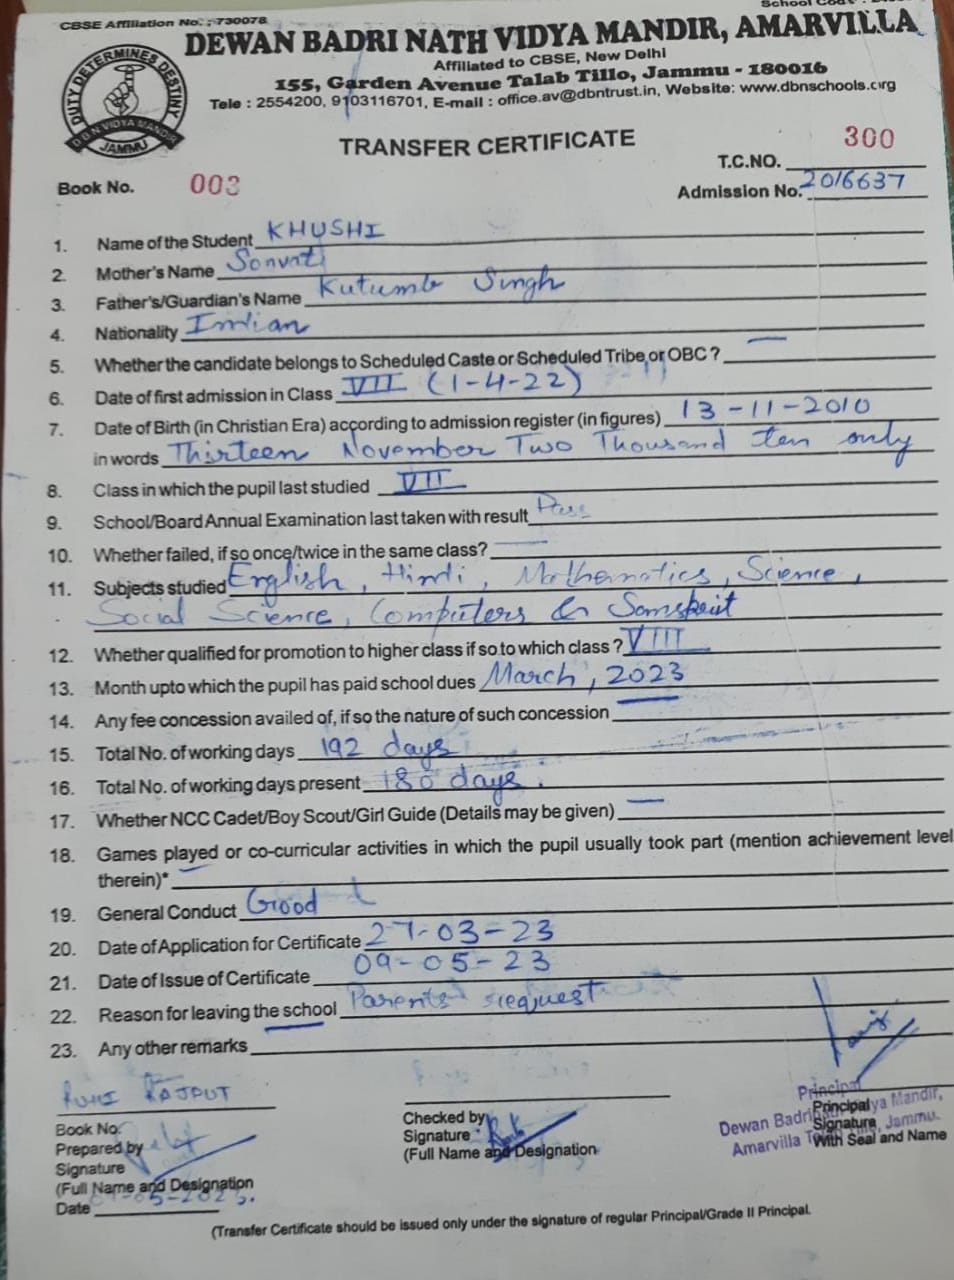 CBSE Affiliation No. : 730078
DEWAN BADRI NATH VIDYA MANDIR, AMARVILLA
Affiliated to CBSE, New Delhi
155, Garden Avenue Talab Tillo, Jammu - 180016
Tele : 2554200, 9103116701, E-mail : office.av@dbntrust.in, Website: www.dbnschools.org
DUTY DETERMINES DESTINY
D.B.N VIDYA MANDIR
JAMMU
TRANSFER CERTIFICATE
T.C.NO. 300
Book No. 003
Admission No. 2016637
1. Name of the Student KHUSHI
2. Mother's Name Sonvati
3. Father's/Guardian's Name Kutumb Singh
4. Nationality Indian
5. Whether the candidate belongs to Scheduled Caste or Scheduled Tribe or OBC ? —
6. Date of first admission in Class VII (1-4-22)
7. Date of Birth (in Christian Era) according to admission register (in figures) 13-11-2010
in words Thirteen November Two Thousand ten only
8. Class in which the pupil last studied VII
9. School/Board Annual Examination last taken with result Pass
10. Whether failed, if so once/twice in the same class? —
11. Subjects studied English, Hindi, Mathematics, Science,
Social Science, Computers & Sanskrit
12. Whether qualified for promotion to higher class if so to which class ? VIII
13. Month upto which the pupil has paid school dues March, 2023
14. Any fee concession availed of, if so the nature of such concession —
15. Total No. of working days 192 days
16. Total No. of working days present 180 days.
17. Whether NCC Cadet/Boy Scout/Girl Guide (Details may be given) —
18. Games played or co-curricular activities in which the pupil usually took part (mention achievement level
therein)* —
19. General Conduct Good
20. Date of Application for Certificate 27-03-23
21. Date of Issue of Certificate 09-05-23
22. Reason for leaving the school Parents request
23. Any other remarks —
RUHI RAJPUT
Book No.
Prepared by
Signature
(Full Name and Designation
Date
Checked by
Signature
(Full Name and Designation
Principal
Principal
Signature
With Seal and Name
(Transfer Certificate should be issued only under the signature of regular Principal/Grade II Principal.